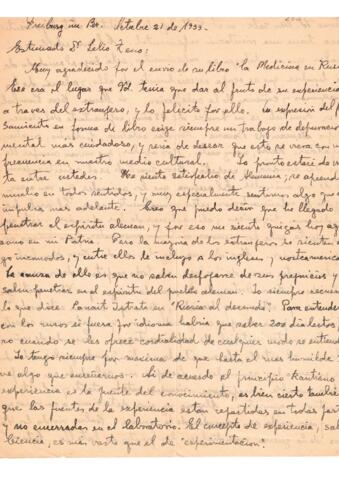 Freiburg im Br. Octubre 21 de 1933.
Estimado Dr Lelio Zeno:
Muy agradecido por el envio de su libro "La Medicina en Rus
Ese era el lugar que Vd. tenia que dar al fruto de su experiencia
a traves del extranjero, y lo felicito por ello. La expresión del
samiento en forma de libro exige siempre un trabajo de depuracion
mental mas cuidadoso, y seria de desear que esto se vera con
frecuencia en nuestro medio cultural. Lo pronto estaré de
ta entre ustedes. Me siento satisfecho de Alemania, se aprende
mucho en todos sentidos, y muy especialmente sentimos algo que
impulsa mas adelante. Creo que puedo decir que he llegado
penetrar el espiritu aleman, y por eso me siento quizas hoy
como en mi Patria. Pero la mayoria de los extranjeros se sienten
go incomodos, y entre ellos se incluye a los ingleses, norteamerica
La causa de ello es que no saben despojarse de sus prejuicios y
saben penetrar en el espiritu del pueblo aleman. Yo siempre recuer
lo que dice Panait Istrati en "Rusia al desnudo". Para entender
con los rusos si fuera por idioma habria que saber 200 dialectos
no cuando se les ofrece cordialidad de cualquier modo se entiend
Yo tengo siempre por maxima de que hasta el mas humilde
ve algo que enseñarnos. Si de acuerdo al principio kantiano
experiencia es la fuente del conocimiento, es bien cierto tambien
que las fuentes de la experiencia estan repartidas en todas part
y no encerradas en el laboratorio. El concepto de experiencia,
Ciencia, es mas vasto que el de "experimentacion".